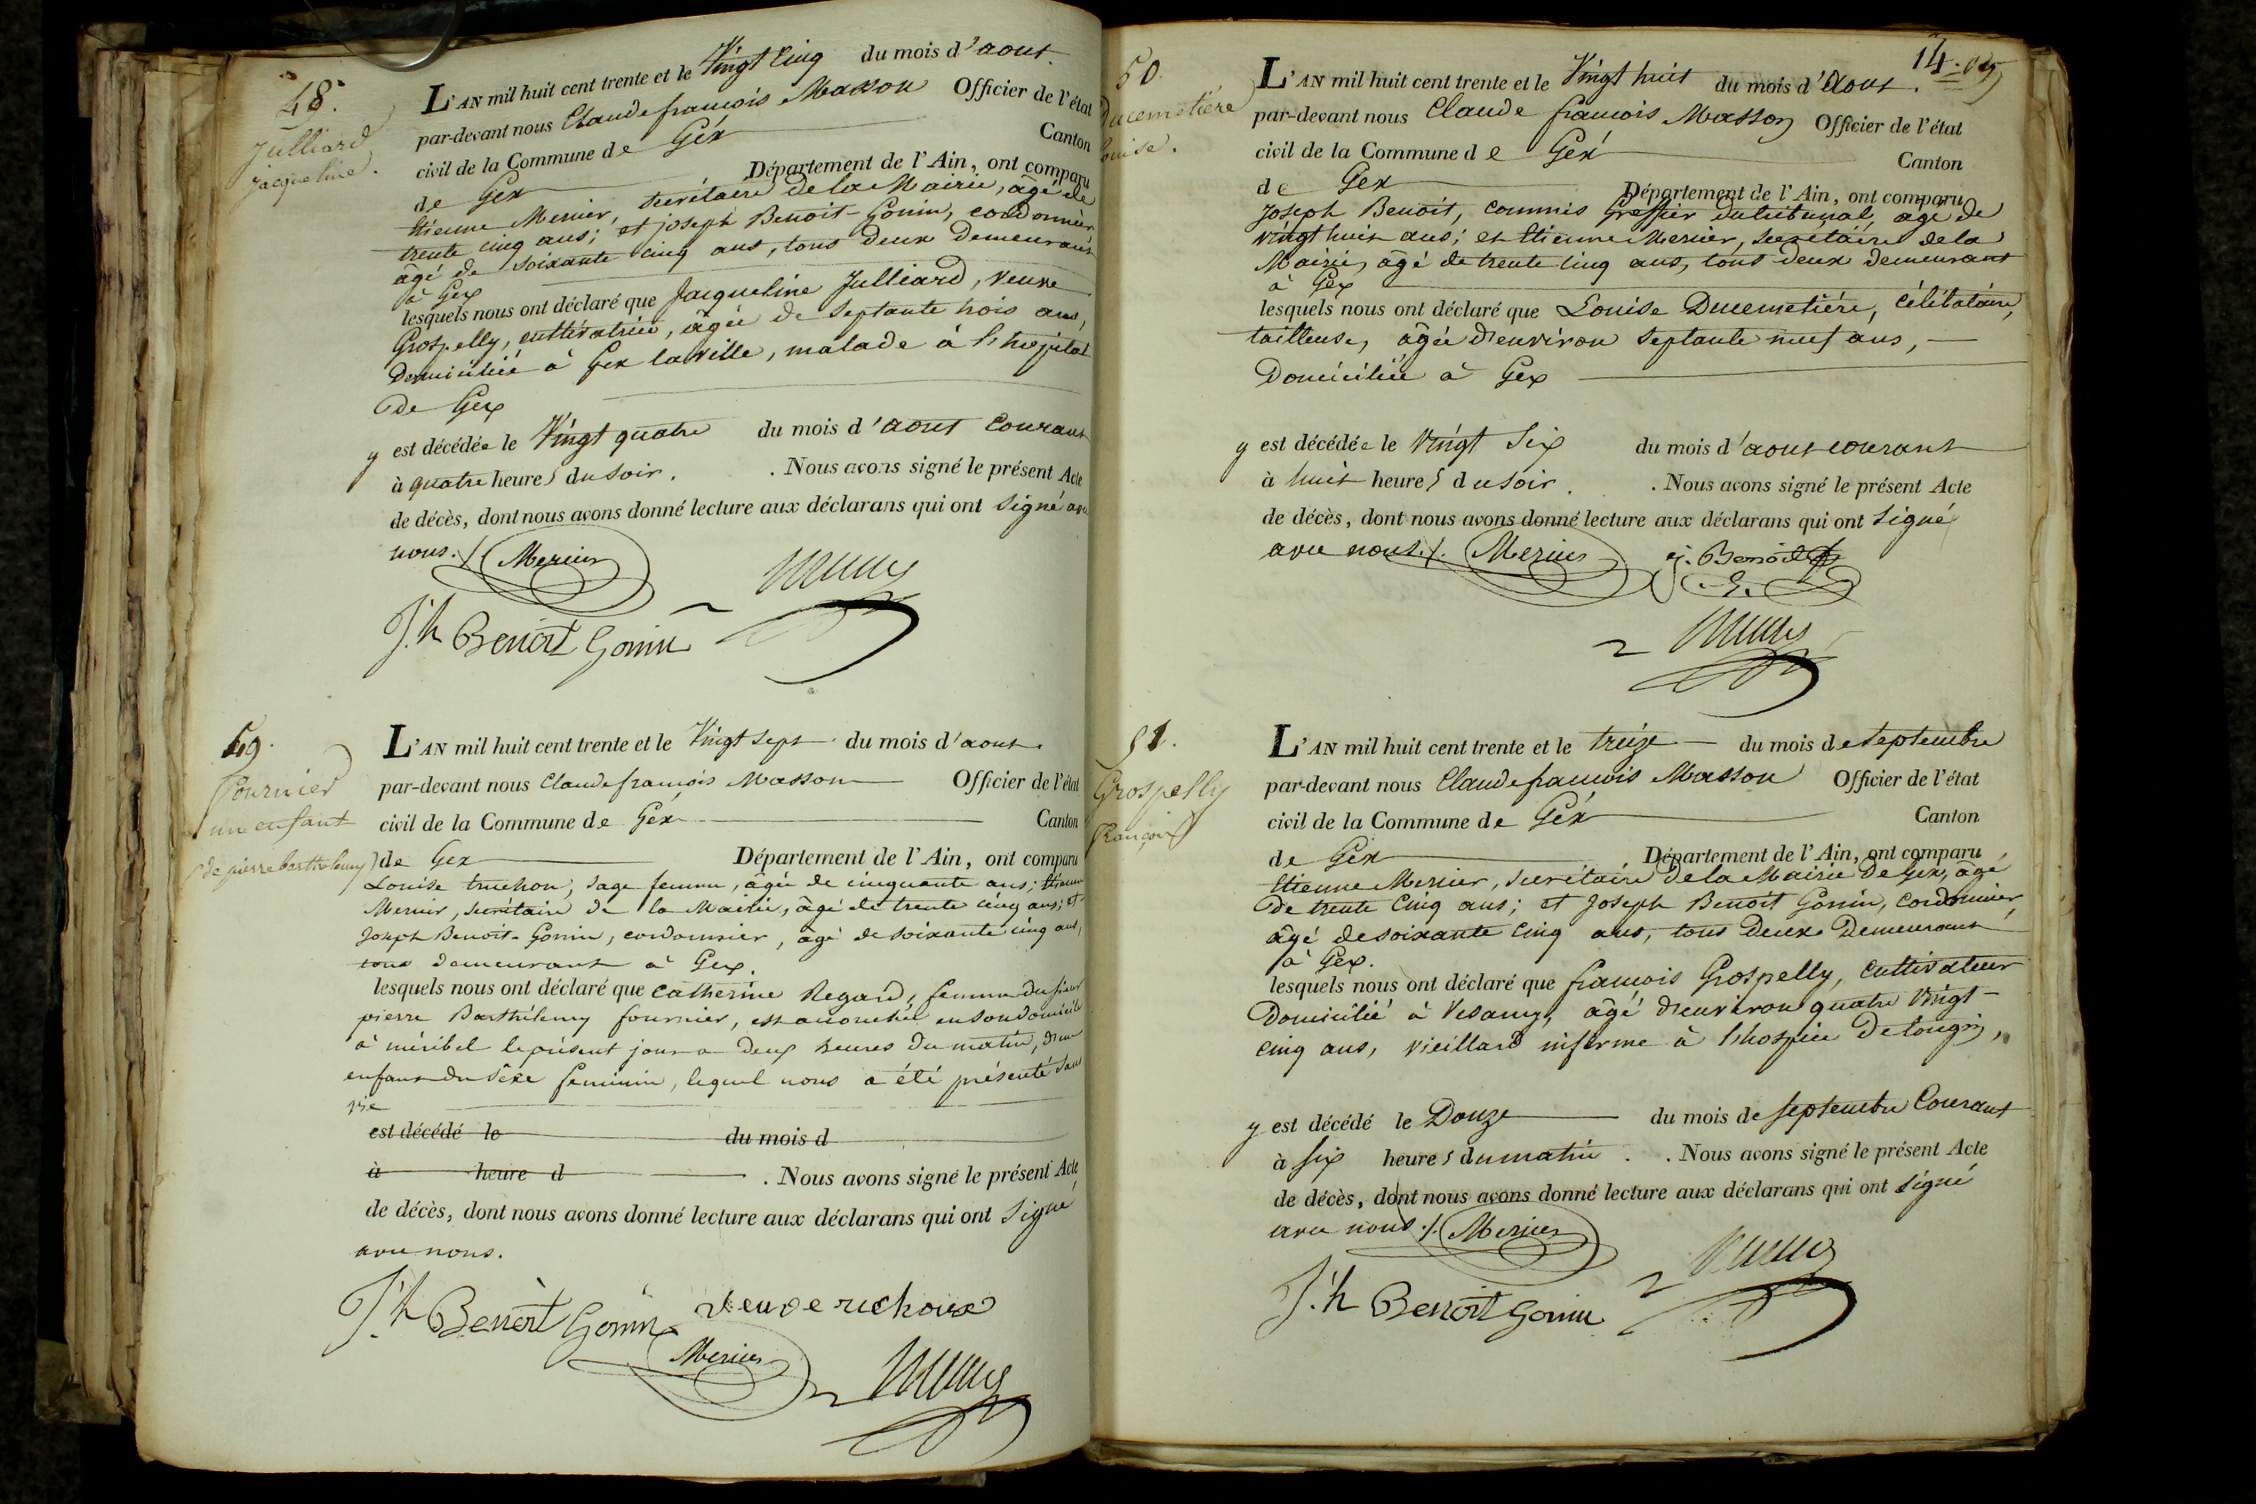 48.
Julliard
Jacqueline.
L'AN mil huit cent trente et le Vingt cinq du mois d'aout.
par-devant nous Claude françois Masson Officier de l'état
civil de la Commune de Géx Canton
de Gex Département de l'Ain, ont comparu
Etienne Mercier, secrétaire de la Mairie, âgé de
trente cinq ans; et joseph Benoit-Gonin, cordonnier
âgé de soixante cinq ans, tous deux demeurant
à Gex
lesquels nous ont déclaré que Jacqueline Julliard, veuve
Grospelly, cultivatrice, âgée de septante trois ans,
Domiciliée à Gex la ville, malade à l'hopital
de Gex
y est décédée le Vingt quatre du mois d'aout courant
à quatre heures du soir. . Nous avons signé le présent Acte
de décès, dont nous avons donné lecture aux déclarans qui ont signé avec
nous ./. Mercier
J.h Benoit Gonin
49.
Fournier
un enfant
(de pierre barthelemy)
L'AN mil huit cent trente et le Vingt sept du mois d'aout.
par-devant nous Claude françois Masson Officier de l'état
civil de la Commune de Géx Canton
de Gex Département de l'Ain, ont comparu
Louise truchon, sage femme, âgée de cinquante ans; Etienne
Mercier, secrétaire de la Mairie, âgé de trente cinq ans; et
Joseph Benoit-Gonin, cordonnier, âgé de soixante cinq ans,
tous demeurant à Gex.
lesquels nous ont déclaré que Catherine Regard, femme du sieur
pierre Barthélemy fournier, est accouchée en son domicile
à méribel le présent jour a deux heures du matin, d'un
enfant du sêxe feminin, lequel nous a été présenté sans
vie
est décédé le du mois d
à heure d . Nous avons signé le présent Acte
de décès, dont nous avons donné lecture aux déclarans qui ont signé
avec nous.
J.h Benoit Gonin veuve richoux
Mercier
14.
50.
Ducemetière
Louise.
L'AN mil huit cent trente et le Vingt huit du mois d'Aout.
par-devant nous Claude françois Masson Officier de l'état
civil de la Commune de Géx Canton
de Gex Département de l'Ain, ont comparu
Joseph Benoit, commis Greffier du tribunal, âgé de
vingt huit ans; et Etienne Mercier, secrétaire de la
Mairie, âgé de trente cinq ans, tous deux demeurant
à Gex
lesquels nous ont déclaré que Louise Ducemetiére, célibataire,
tailleuse, âgée d'environ septante neuf ans,
Domiciliée à Gex
y est décédée le Vingt Six du mois d'aout courant
à huit heures du soir. . Nous avons signé le présent Acte
de décès, dont nous avons donné lecture aux déclarans qui ont signé
avec nous ./. Mercier j. Benoit
51.
Grospelly
François
L'AN mil huit cent trente et le treize du mois de septembre
par-devant nous Claude françois Masson Officier de l'état
civil de la Commune de Géx Canton
de Gex Département de l'Ain, ont comparu
Etienne Mercier, secrétaire de la Mairie de Gex, âgé
de trente cinq ans; et Joseph Benoit Gonin, cordonnier,
âgé de soixante cinq ans, tous deux Demeurant
à Gex.
lesquels nous ont déclaré que françois Grospelly, cultivateur
Domicilié à Vesancy, âgé d'environ quatre vingt-
cinq ans, vieillard infirme à l'hospice De tougin,
y est décédé le Douze du mois de septembre Courant
à six heures du matin. . Nous avons signé le présent Acte
de décès, dont nous avons donné lecture aux déclarans qui ont signé
avec nous ./. Mercier
J.h Benoit Gonin